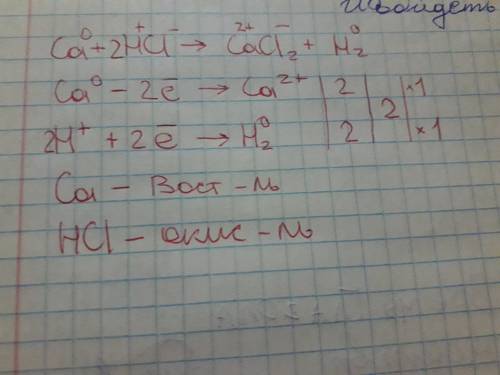 Ca⁰ + 2H⁺Cl⁻ → Ca²⁺Cl₂⁻ + H₂⁰
Ca⁰ – 2e̅ → Ca²⁺ | 2 | 2 | ·1
2H⁺ + 2e̅ → H₂⁰ | 2 | | ×1
Ca – Вост – ль
HCl – окис – ль